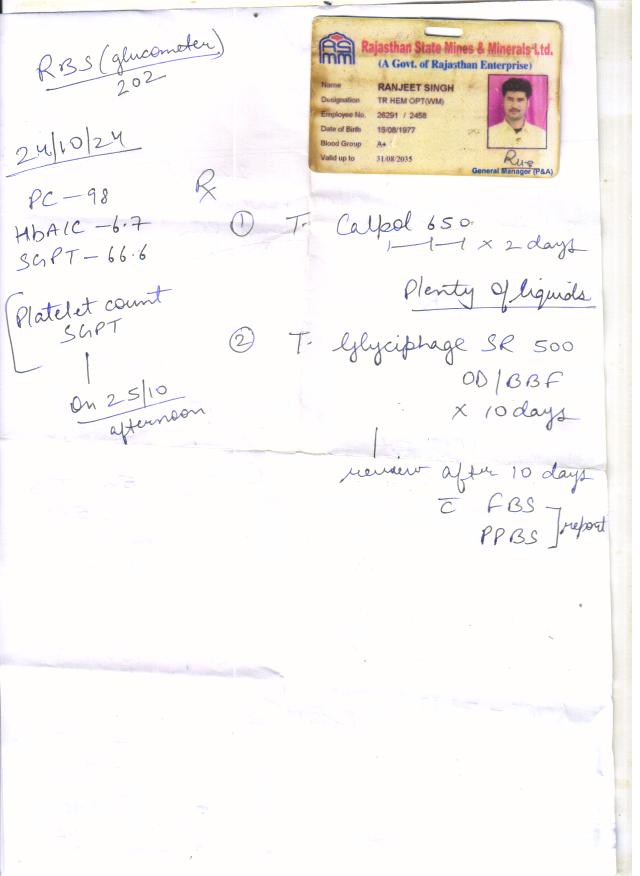 RBS (glucometer)
202
24/10/24
PC – 98
HbA1C – 6.7
SGPT – 66.6
Platelet count
SGPT
On 25/10
afternoon
ASMM
Rajasthan State Mines & Minerals Ltd.
(A Govt. of Rajasthan Enterprise)
Name RANJEET SINGH
Designation TR HEM OPT(WM)
Employee No. 26291 / 2458
Date of Birth 15/08/1977
Blood Group A+
Valid up to 31/08/2035
General Manager (P&A)
Rx
① T. Calpol 650
× 2 days
Plenty of liquids
② T. Glyciphage SR 500
OD/BBF
× 10 days
review after 10 days
c̄ FBS
PPBS
report